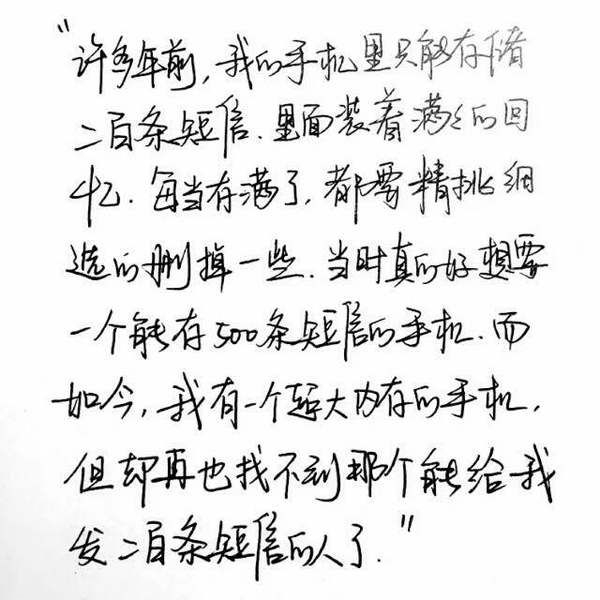 “许多年前，我的手机里只能存储
二百条短信．里面装着满满的回
忆．每当存满了，都要精挑细
选的删掉一些．当时真的好想要
一个能存500条短信的手机．而
如今，我有一个超大内存的手机，
但却再也找不到那个能给我
发二百条短信的人了．”